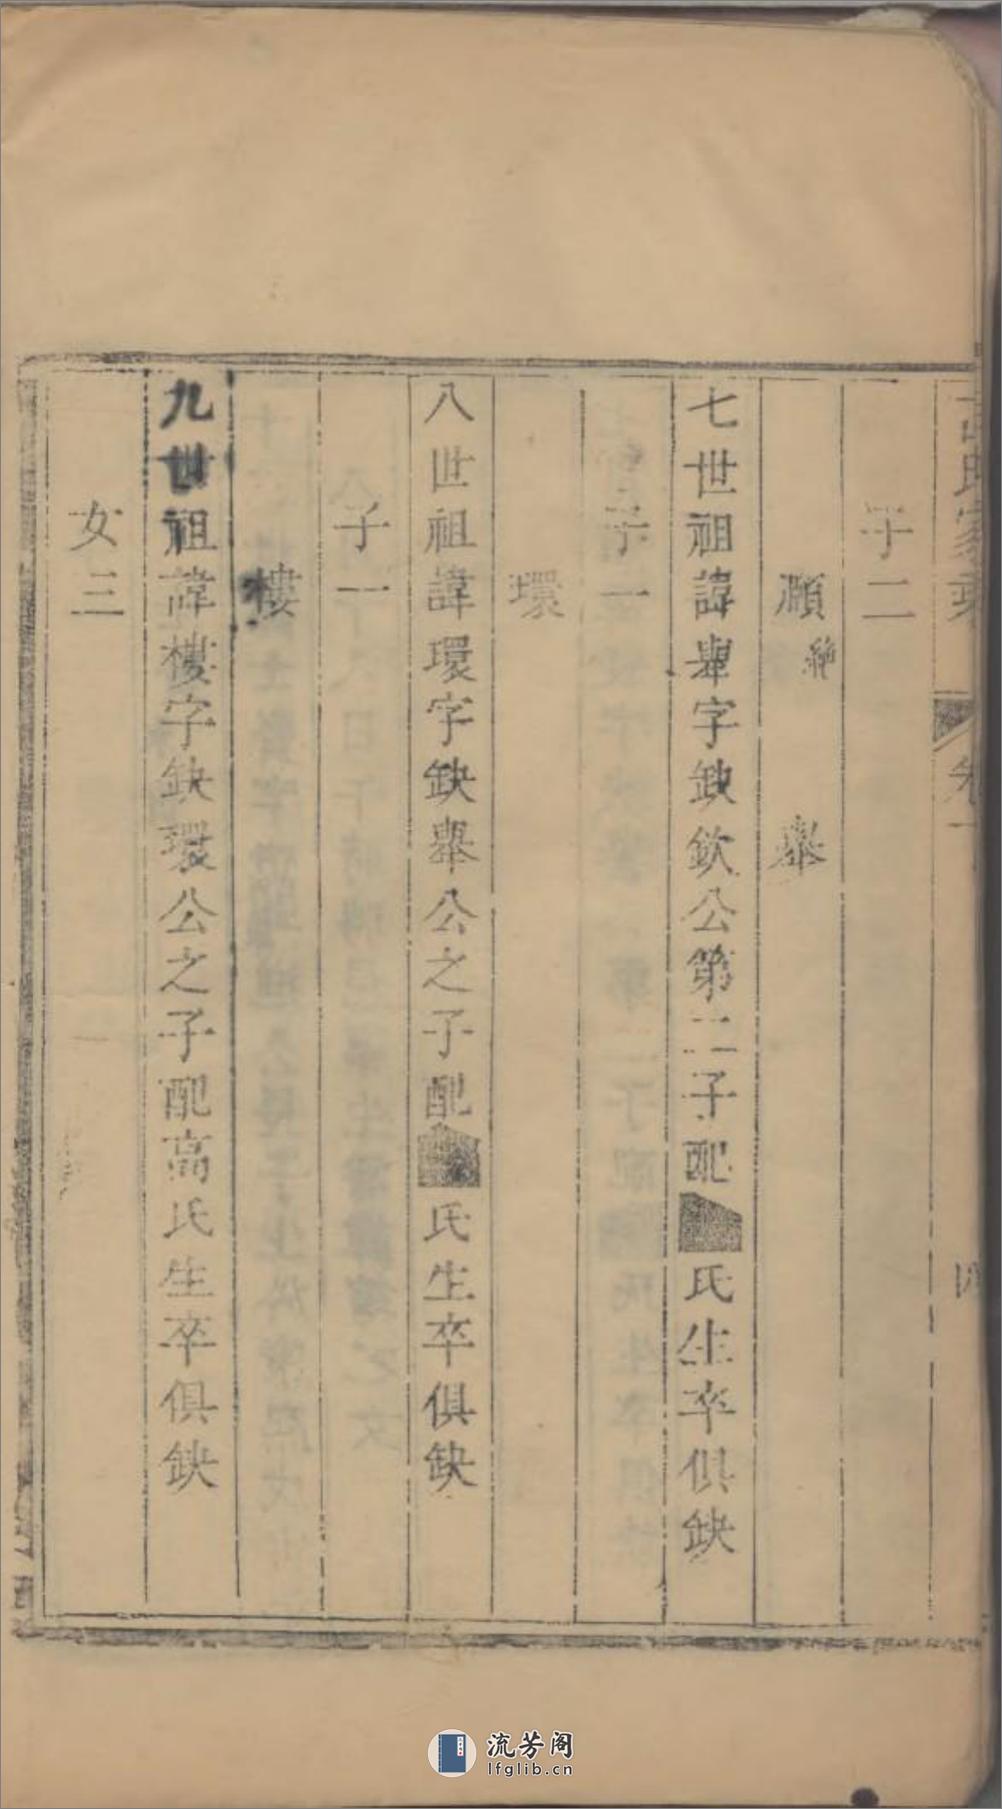 氏家乘 卷一 四
子二
顯 絶 舉
七世祖諱舉字缺欽公第二子配氏生卒俱缺
子一
環
八世祖諱環字缺舉公之子配氏生卒俱缺
子一
樓
九世祖諱樓字缺環公之子配高氏生卒俱缺
女三
流芳阁
lfglib.cn